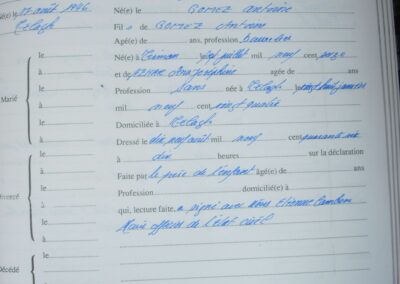 Né(e) le 17 août 1946
Telagh
Né(e) le GOMEZ Antoine
Fil s de GOMEZ Antoine
Agé(e) de ans, profession
Né(e) à juillet mil neuf cent onze
et de Josephine agée de ans
Profession Sans née à Telagh le vingt huit janvier
mil neuf cent vingt quatre
Domiciliée à Telagh
Dressé le dix neuf août mil neuf cent quarante six
à dix heures sur la déclaration
Faite par le père de l'enfant âgé(e) de ans
Profession domicilié(e) à
qui, lecture faite, a signé avec Nous Etienne Cambon
Maire officier de l'état civil
Marié
le
à
le
à
le
à
le
à
le
à
le
à
le
à
Décédé
le